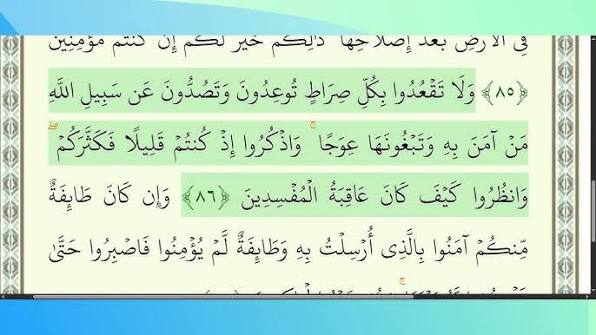 فِى الْأَرْضِ بَعْدَ إِصْلَاحِهَا ذَٰلِكُمْ خَيْرٌ لَّكُمْ إِن كُنتُم مُّؤْمِنِينَ
﴿٨٥﴾ وَلَا تَقْعُدُوا بِكُلِّ صِرَاطٍ تُوعِدُونَ وَتَصُدُّونَ عَن سَبِيلِ اللَّهِ
مَنْ آمَنَ بِهِ وَتَبْغُونَهَا عِوَجًا ۚ وَاذْكُرُوا إِذْ كُنتُمْ قَلِيلًا فَكَثَّرَكُمْ ۖ
وَانظُرُوا كَيْفَ كَانَ عَاقِبَةُ الْمُفْسِدِينَ ﴿٨٦﴾ وَإِن كَانَ طَائِفَةٌ
مِّنكُمْ آمَنُوا بِالَّذِى أُرْسِلْتُ بِهِ وَطَائِفَةٌ لَّمْ يُؤْمِنُوا فَاصْبِرُوا حَتَّىٰ